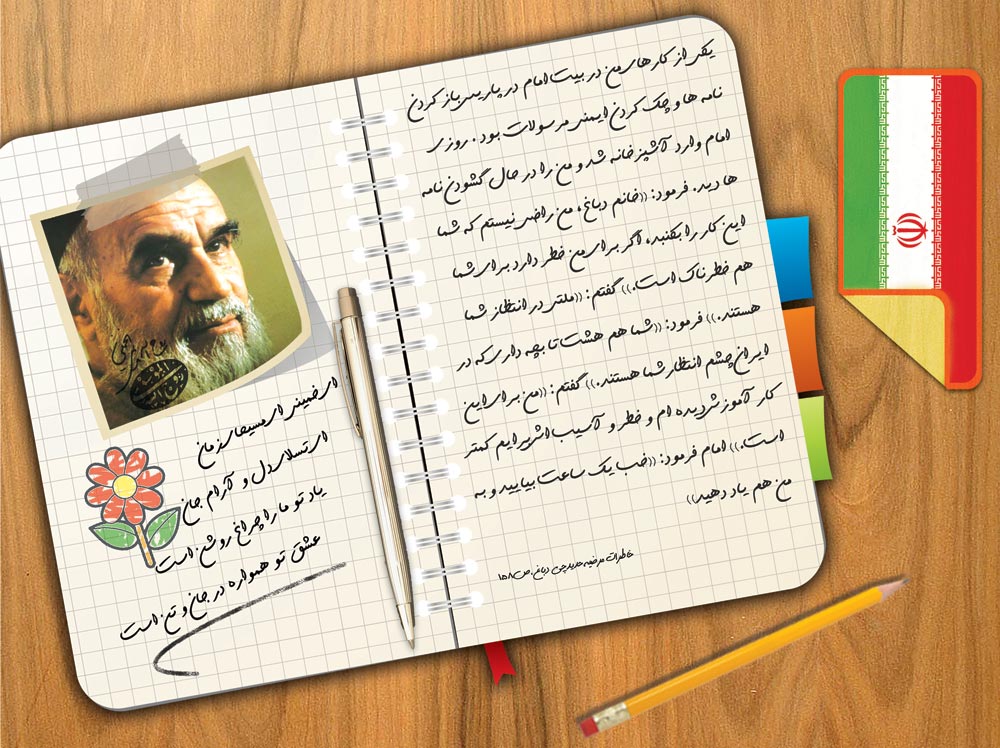 یکی از کارهای من در بیت امام در پاریس باز کردن
نامه ها و چک کردن ایمنی مرسولات بود. روزی
امام وارد آشپزخانه شد و من را در حال گشودن نامه
ها دید. فرمود: ((خانم دباغ، من راضی نیستم که شما
این کار را بکنید، اگر برای من خطر دارد برای شما
هم خطرناک است.)) گفتم: ((ملتی در انتظار شما
هستند.)) فرمود: ((شما هم هشت تا بچه داری که در
ایران چشم انتظار شما هستند.)) گفتم: ((من برای این
کار آموزش دیده ام و خطر و آسیب اش برایم کمتر
است.)) امام فرمود: ((خب یک ساعت بیایید و به
من هم یاد دهید))
خاطرات مرضیه حدیدچی دباغ، ص ۱۵۸
ای خمینی ای مسیحای زمان
ای تسلای دل و آرام جان
یاد تو ما را چراغ روشن است
عشق تو همواره در جان و تن است